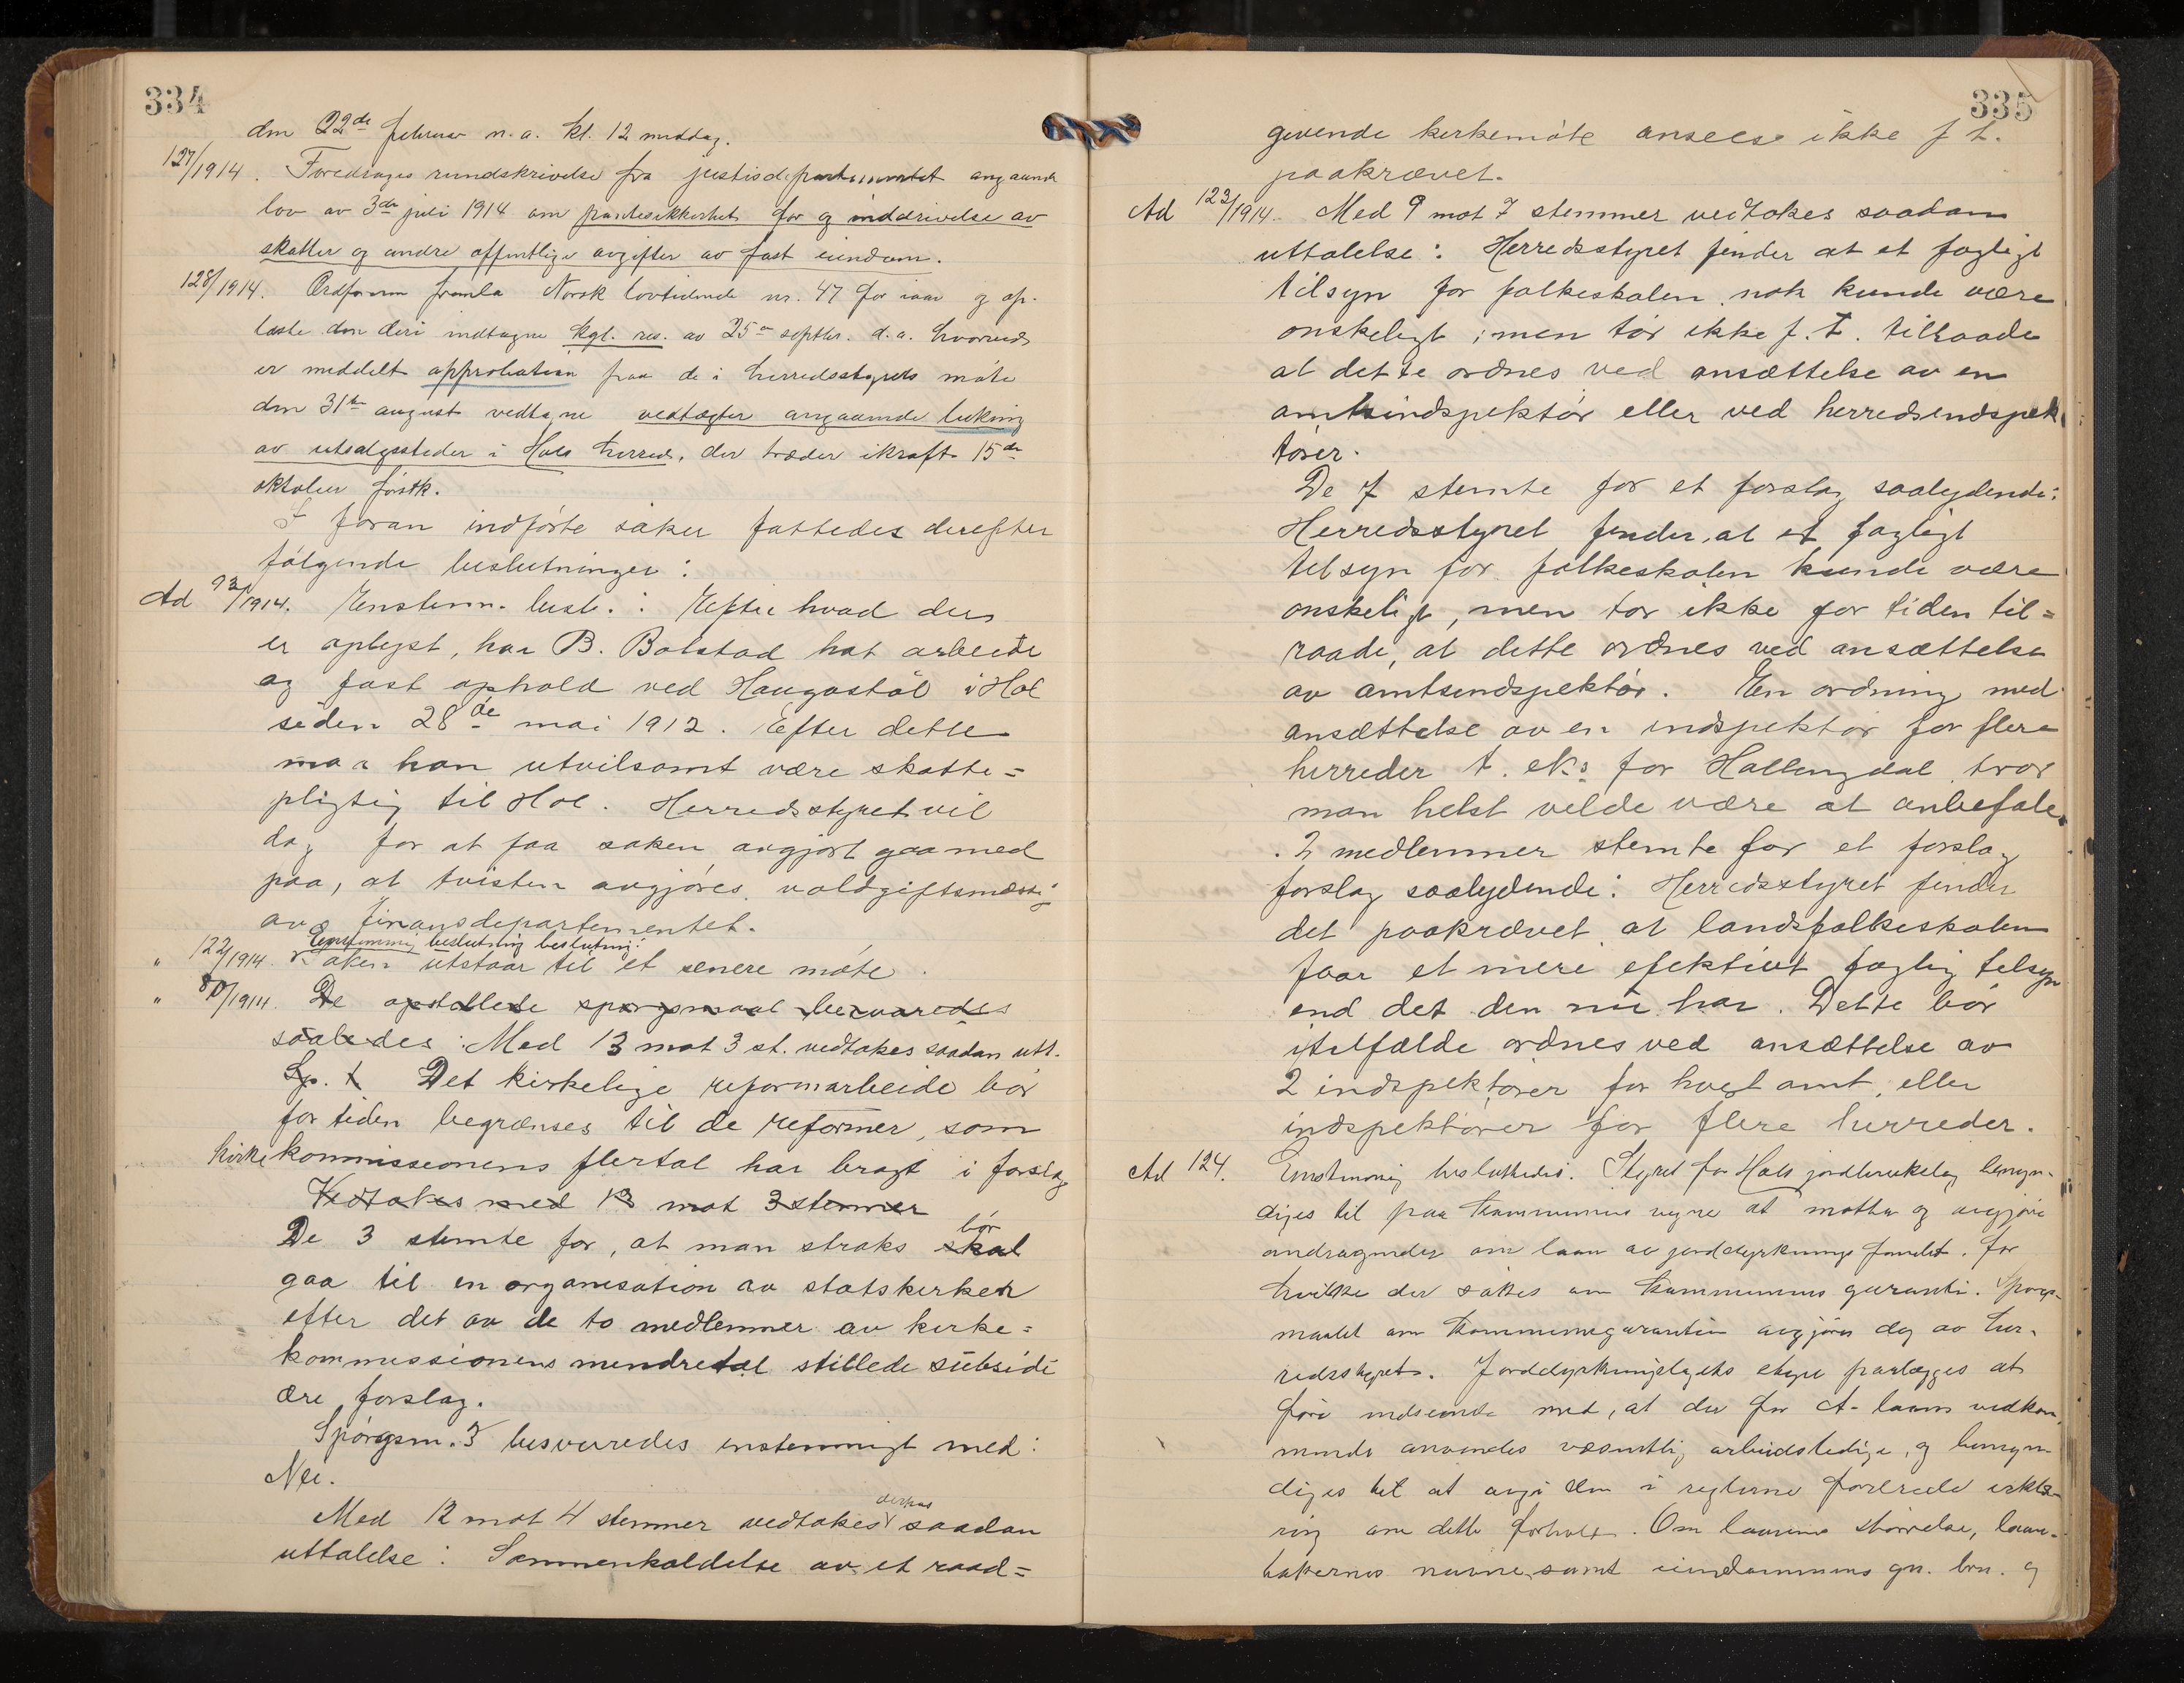 334
den 22de februar n. a. kl. 12 middag.
127/1914. Foredrages rundskrivelse fra justisdepartementet angaaende
lov av 3de juli 1914 om pantesikkerhet for og inddrivelse av
skatter og andre offentlige avgifter av fast eiendom.
128/1914. Ordføreren fremla Norsk lovtidende nr. 47 for iaar og op-
læste den deri indtagne kgl. res. av 25de septbr. d. a. hvorved
er meddelt approbation paa de i herredsstyrets møte
den 31te august vedtagne vedtægter angaaende lukning
av utsalgssteder i Hols herred, der træder ikraft 15de
oktober førstk.
I foran indførte saker fattedes derefter
følgende beslutninger:
Ad 93/1914. Enstemm. besl.: Efter hvad der
er oplyst, har B. Bolstad hat arbeide
og fast ophold ved Haugastøl i Hol
siden 28de mai 1912. Efter dette
maa han utvilsomt være skatte=
pligtig til Hol. Herredsstyret vil
dog for at faa saken avgjort gaa med
paa, at tvisten avgjøres voldgiftsmæssig
av finansdepartementet.
Enstemmig beslutning beslutning:
" 122/1914. Saken utstaar til et senere møte.
" 80/1914. De opstillede spørgsmaal besvaredes
saaledes: Med 13 mot 3 st. vedtakes saadan utt.
Sp. 1 Det kirkelige reformarbeide bør
for tiden begrænses til de reformer, som
kirkekommissionens flertal har bragt i forslag
Vedtakes med 13 mot 3 stemmer
De 3 stemte for, at man straks skal bør
gaa til en organisation av statskirken
efter det av de to medlemmer av kirke=
kommissionens mindretal stillede subsidi
ære forslag.
Spørgsm. 3 besvaredes enstemmigt med:
Nei.
Med 12 mot 4 stemmer vedtakes saadan
uttalelse: Sammenkaldelse av et raad=
335
givende kirkemøte ansees ikke f. t.
paakrævet.
Ad 123/1914. Med 9 mot 7 stemmer vedtokes saadan
uttalelse: Herredsstyret finder at et fagligt
tilsyn for folkeskolen nok kunde være
ønskeligt; men tør ikke f. t. tilraade
at dette ordnes ved ansættelse av en
amtsindspektør eller ved herredsindspek
tører.
De 7 stemte for et forslag saalydende:
Herredsstyret finder, at et fagligt
tilsyn for folkeskolen kunde være
ønskeligt, men tør ikke for tiden til=
raade, at dette ordnes ved ansættelse
av amtsindspektør. En ordning med
ansættelse av en indspektør for flere
herreder t. eks for Hallingdal tror
man helst vilde være at anbefale.
2 medlemmer stemte for et forslag
forslag saalydende: Herredsstyret finder
det paakrævet at landsfolkeskolen
faar et mere efektivt faglig tilsyn
end det den nu har. Dette bør
itilfælde ordnes ved ansættelse av
2 indspektører for hvert amt, eller
indspektører for flere herreder.
Ad 124. Enstemmig besluttedes. Styret for Hols jordbrukslag bemyn-
diges til paa kommunens vegne at motta og avgjøre
andragender om laan av jorddyrkningsfondet, for
hvilke der søkes om kommunens garanti. Spørs-
maalet om kommunegarantien avgjøres dog av her-
redsstyret. Jorddyrkningslagets styre paalægges at
føre indseende med, at der for A-laans vedkom
mende anvendes væsentlig arbeidsledige, og bemyn-
diges til at avgi den i reglerne forlaede erklæ-
ring om dette forhold. Om laanenes størrelse, laan-
takernes navne, samt eiendommens gn. brn. og